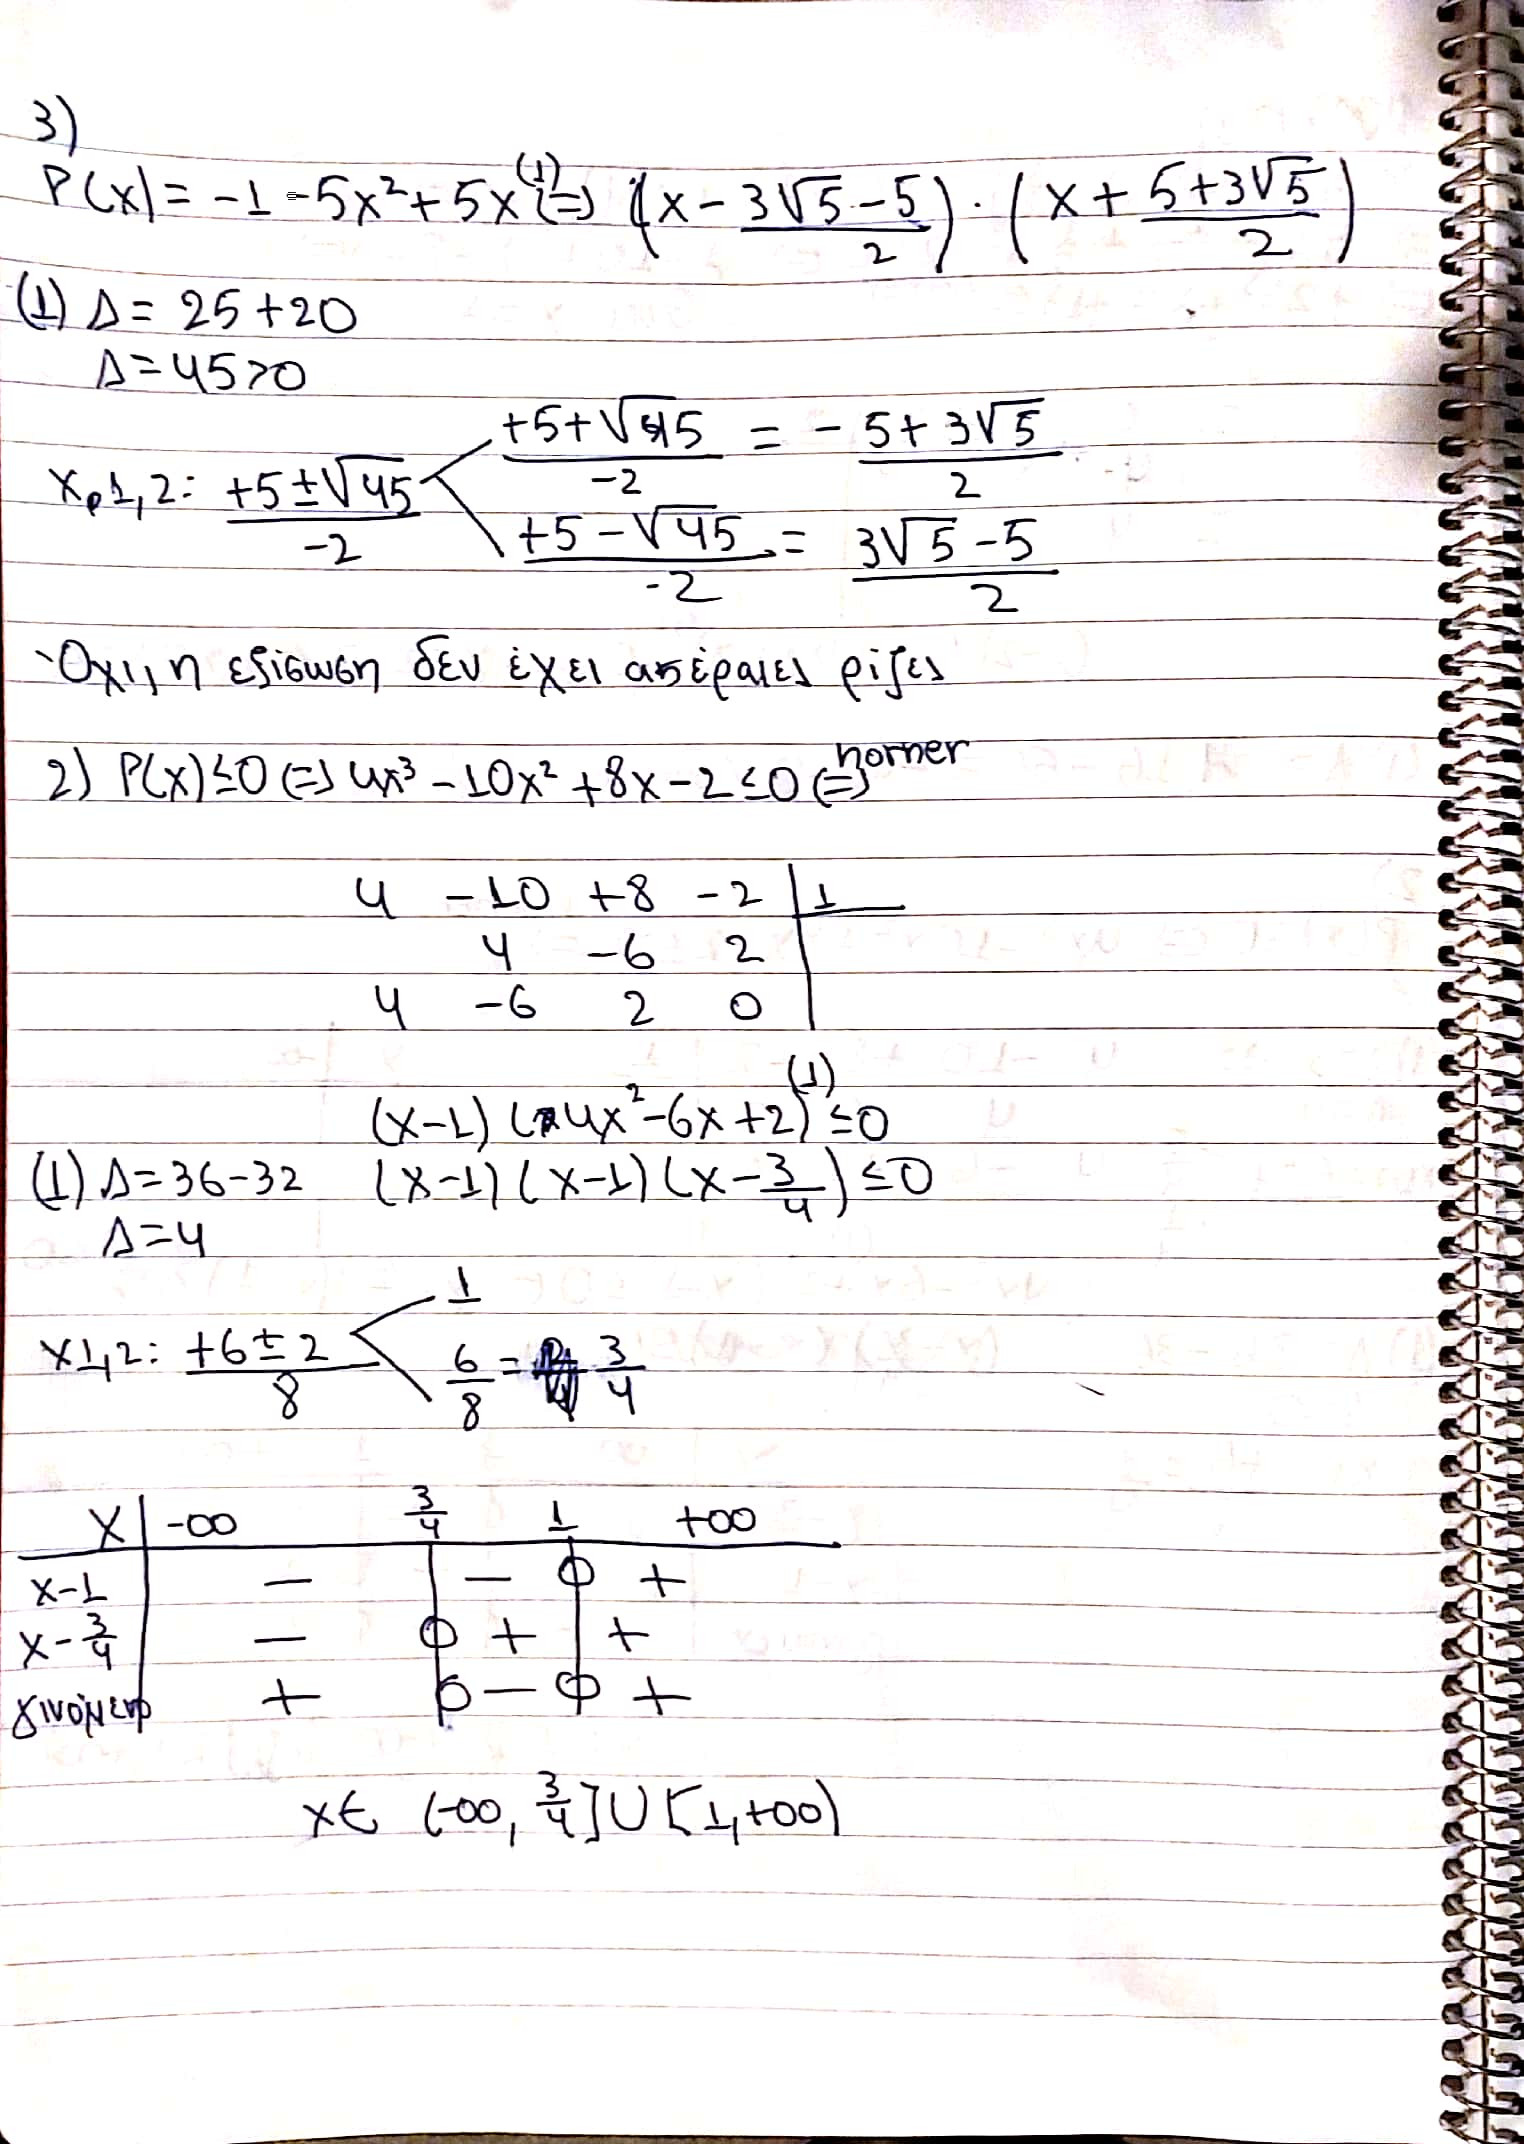 3)
P(x) = -1 - 5x² + 5x (1)⇔ (x - (3√5 - 5)/2) · (x + (5+3√5)/2)
(1) Δ = 25 + 20
Δ = 45 > 0
x₀1,2: (+5 ± √45)/-2
(+5 + √45)/-2 = - (5 + 3√5)/2
(+5 - √45)/-2 = (3√5 - 5)/2
Όχι, η εξίσωση δεν έχει ακέραιες ρίζες
2) P(x) ≤ 0 ⇔ 4x³ - 10x² + 8x - 2 ≤ 0 ⇔ horner
4 -10 +8 -2 | 1
4 -6 2
4 -6 2 0
(x-1) (4x² - 6x + 2)(1) ≤ 0
(1) Δ = 36 - 32 (x-1) (x-1) (x - 3/4) ≤ 0
Δ = 4
x1,2: (+6 ± 2)/8
1
6/8 = 3/4
x | -∞ 3/4 1 +∞
x-1 | - | - 0 +
x - 3/4 | - 0 + | +
γινόμενο + 0 - 0 +
x ∈ (-∞, 3/4] ∪ [1, +∞)